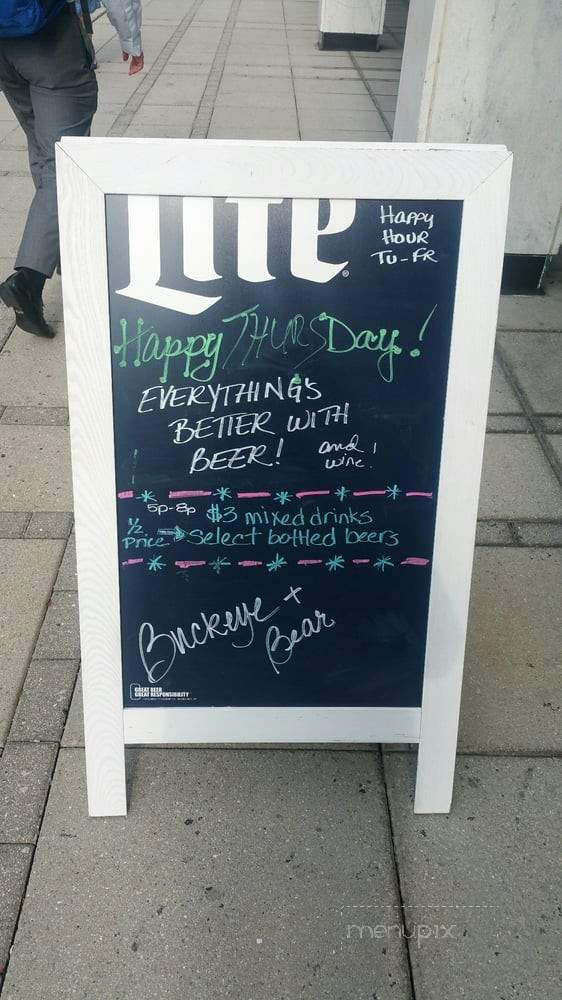 Lite
Happy
Hour
Tu-Fr
Happy THURSDay!
EVERYTHING'S
BETTER WITH
BEER! and
wine!
5p-8p $3 mixed drinks
1/2
Price Select bottled beers
Buckeye +
Bear
GREAT BEER
GREAT RESPONSIBILITY
menupix